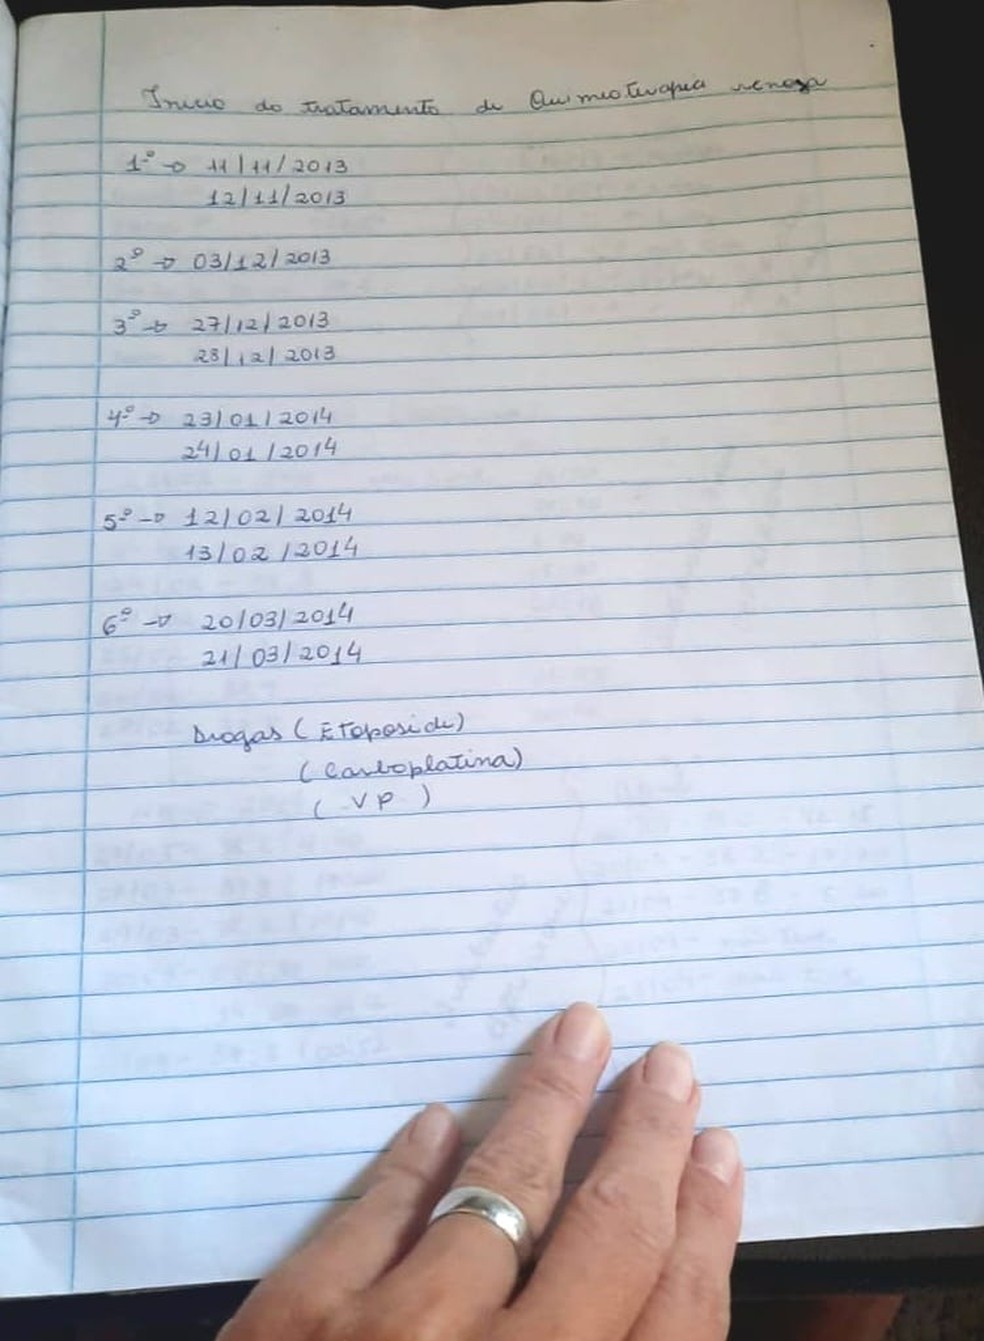 Inicio do tratamento de Quimioterapia venosa
1º → 11/11/2013
12/11/2013
2º → 03/12/2013
3º → 27/12/2013
28/12/2013
4º → 23/01/2014
24/01/2014
5º → 12/02/2014
13/02/2014
6º → 20/03/2014
21/03/2014
Drogas (Etoposide)
(Carboplatina)
(VP)